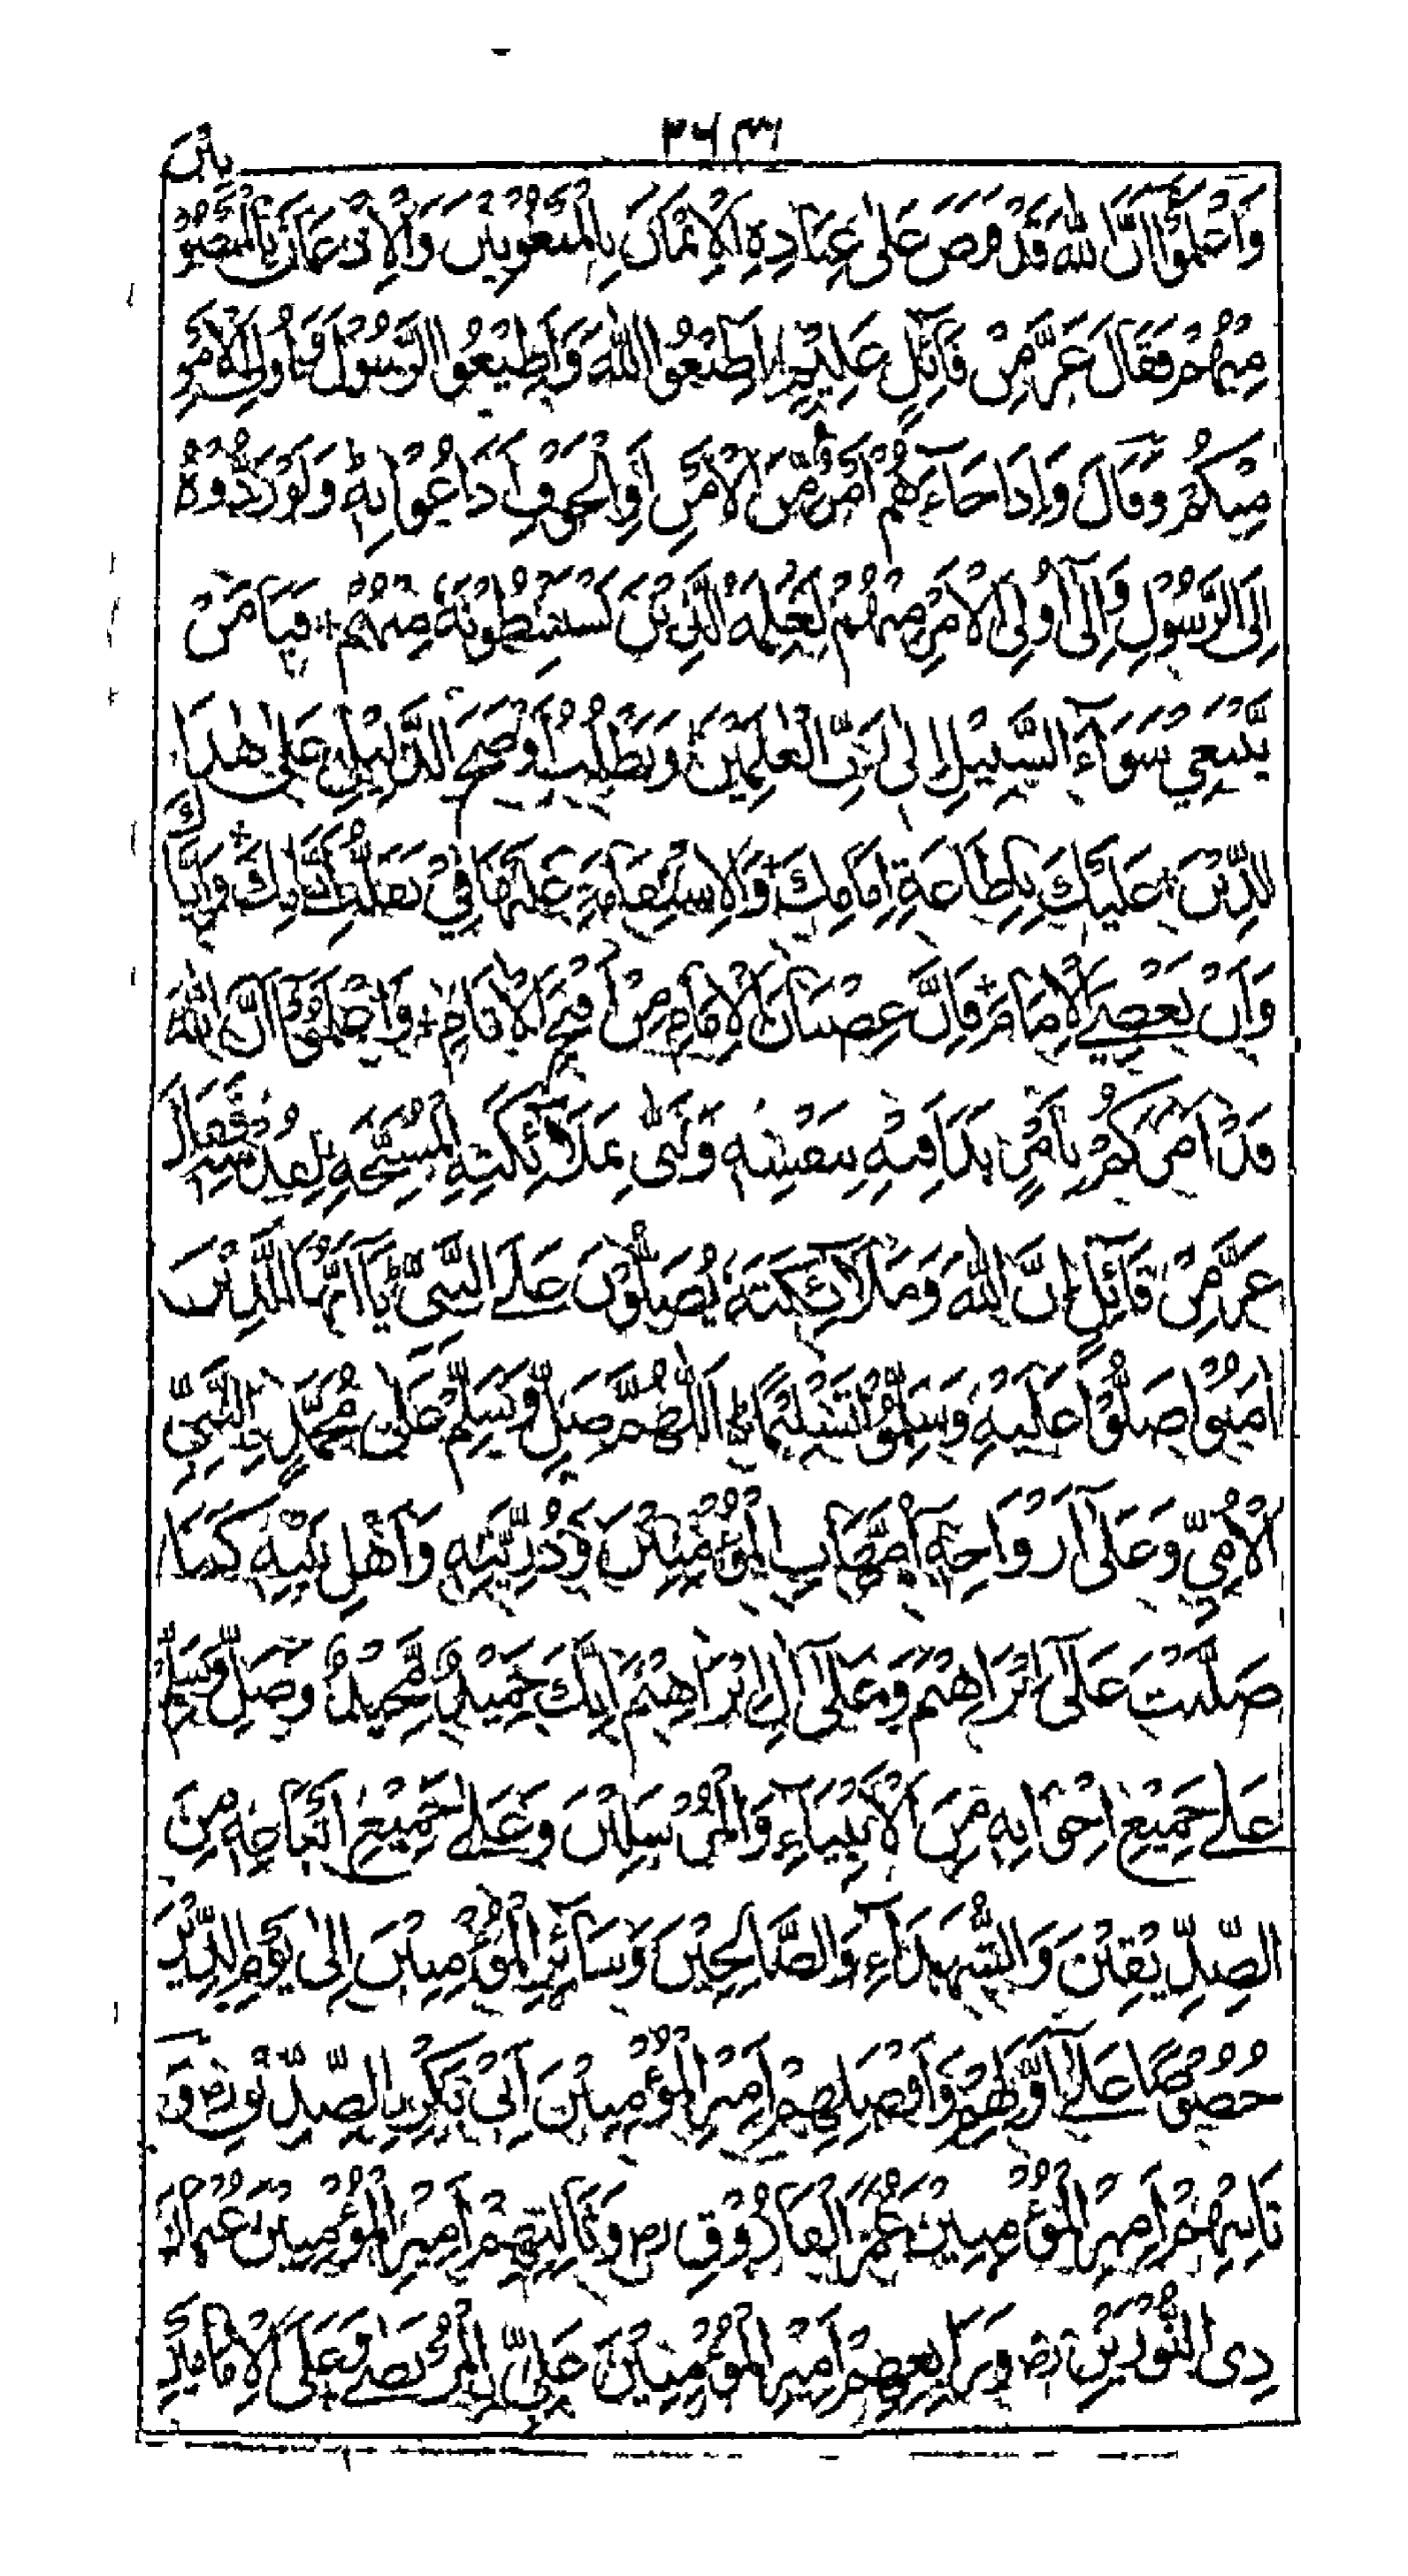 وَاعْلَمُوْا اَنَّ اللّٰهَ قَدْ فَرَضَ عَلٰى عِبَادِهِ الْاِيْمَانَ بِالْمَبْعُوْثِيْنَ وَالْاِذْعَانَ بِالْمَنْصُوْ
مِنْهُمْ فَقَالَ عَزَّ مِنْ قَائِلٍ عَلِيْمٍ اَطِيْعُوا اللّٰهَ وَاَطِيْعُوا الرَّسُوْلَ وَاُولِى الْاَمْرِ
مِنْكُمْ وَقَالَ وَاِذَا جَآءَهُمْ اَمْرٌ مِّنَ الْاَمْنِ اَوِ الْخَوْفِ اَذَاعُوْا بِهٖ وَلَوْ رَدُّوْهُ
اِلَى الرَّسُوْلِ وَاِلٰٓى اُولِى الْاَمْرِ مِنْهُمْ لَعَلِمَهُ الَّذِيْنَ يَسْتَنْبِطُوْنَهٗ مِنْهُمْ فَيَا مَنْ
يَبْتَغِيْ سَوَآءَ السَّبِيْلِ اِلٰى رَبِّ الْعٰلَمِيْنَ وَيَطْلُبُ اَوْضَحَ الدَّلِيْلِ عَلٰى هٰذَا
الدِّيْنِ عَلَيْكَ بِطَاعَةِ اِمَامِكَ وَالْاِسْتِقَامَةِ عَلَيْهَا فِيْ وَاِيَّاكَ
وَاَنْ تَعْصِيَ الْاِمَامَ فَاِنَّ عِصْيَانَ الْاِمَامِ مِنْ الْاٰثَامِ وَاعْلَمُوْا اَنَّ اللّٰهَ
قَدْ اَمَرَكُمْ بِاَمْرٍ بَدَاَ فِيْهِ بِنَفْسِهٖ وَثَنّٰى بِمَلَآئِكَتِهِ الْمُسَبِّحَةِ بِقُدْسِهٖ فَقَالَ
عَزَّ مِنْ قَآئِلٍ اِنَّ اللّٰهَ وَمَلَآئِكَتَهٗ يُصَلُّوْنَ عَلَى النَّبِيِّ يَآ اَيُّهَا الَّذِيْنَ
اٰمَنُوْا صَلُّوْا عَلَيْهِ وَسَلِّمُوْا تَسْلِيْمًا اَللّٰهُمَّ صَلِّ وَسَلِّمْ عَلٰى مُحَمَّدِنِ النَّبِيِّ
الْاُمِّيِّ وَعَلٰٓى اَزْوَاجِهٖٓ اُمَّهَاتِ الْمُؤْمِنِيْنَ وَذُرِّيَّتِهٖ وَاَهْلِ بَيْتِهٖ كَمَا
صَلَّيْتَ عَلٰٓى اِبْرَاهِيْمَ وَعَلٰٓى اٰلِ اِبْرَاهِيْمَ اِنَّكَ حَمِيْدٌ مَّجِيْدٌ وَصَلِّ وَسَلِّمْ
عَلٰى جَمِيْعِ اِخْوَانِهٖ مِنَ الْاَنْبِيَآءِ وَالْمُرْسَلِيْنَ وَعَلٰى جَمِيْعِ اَتْبَاعِهٖ مِنَ
الصِّدِّيْقِيْنَ وَالشُّهَدَآءِ وَالصَّالِحِيْنَ وَسَآئِرِ الْمُؤْمِنِيْنَ اِلٰى يَوْمِ الدِّيْنِ
خُصُوْصًا عَلٰٓى اَوَّلِهِمْ وَاَفْضَلِهِمْ اَمِيْرِ الْمُؤْمِنِيْنَ اَبِيْ بَكْرِنِ الصِّدِّيْقِ رض وَ
ثَانِيْهِمْ اَمِيْرِ الْمُؤْمِنِيْنَ عُمَرَ الْفَارُوْقِ رض وَثَالِثِهِمْ اَمِيْرِ الْمُؤْمِنِيْنَ عُثْمَانَ
ذِى النُّوْرَيْنِ رض وَرَابِعِهِمْ اَمِيْرِ الْمُؤْمِنِيْنَ عَلِيِّ الْمُرْتَضٰى وَعَلَى الْاِمَامَيْنِ